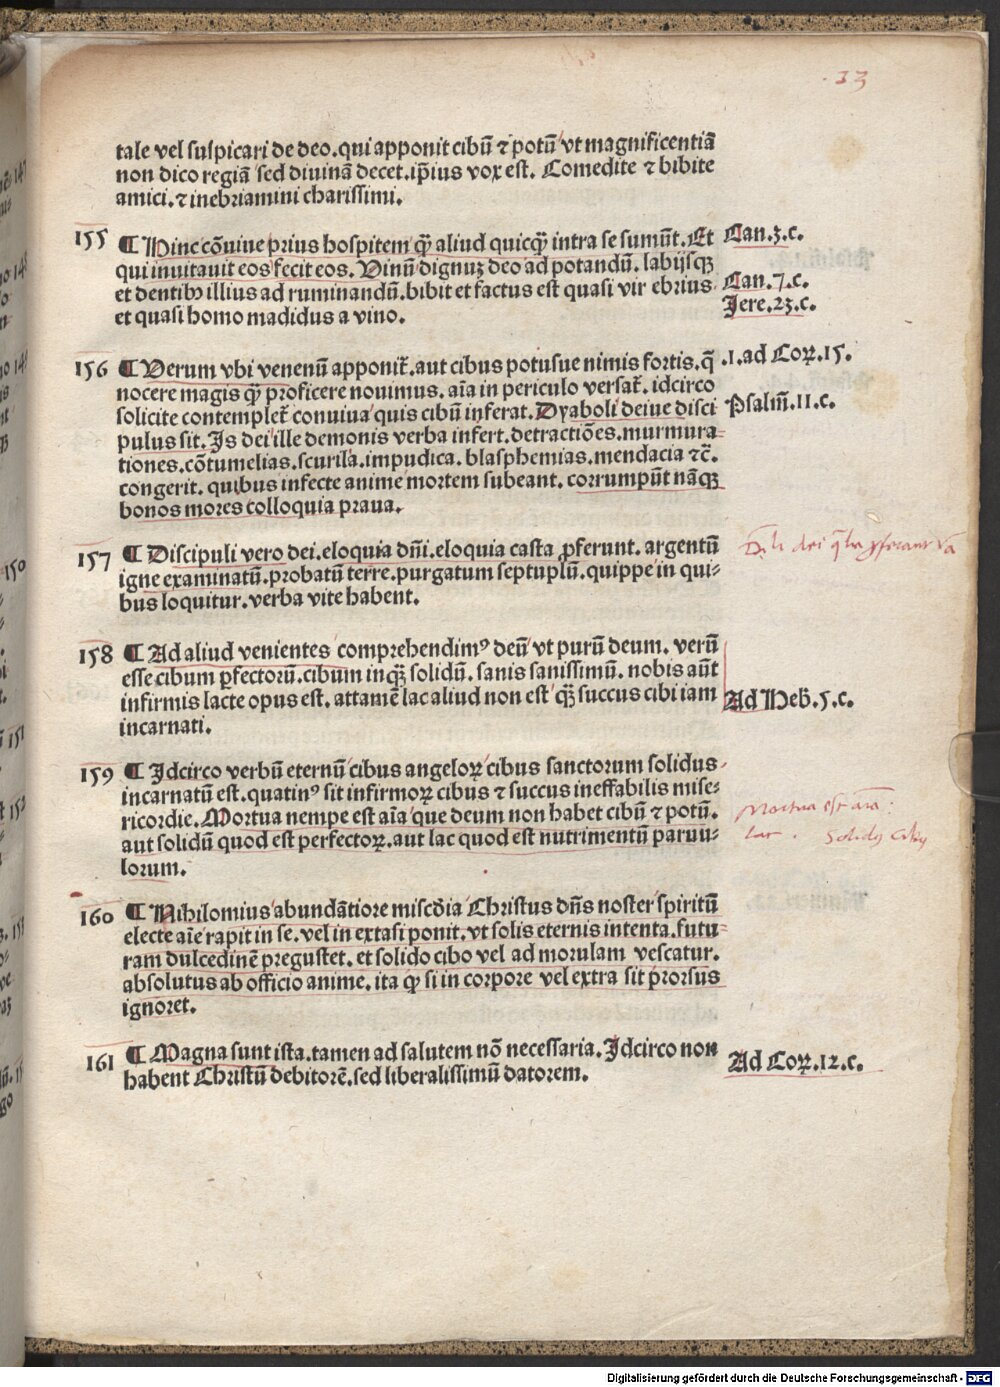 .33
tale vel suspicari de deo.qui apponit cibū ⁊ potū vt magnificentiā
non dico regiā sed diuinā decet.ip̄ius vox est. Comedite ⁊ bibite
amici.⁊ inebriamini charissimi.
155 ¶ Hinc cōuiue prius hospitem qꝫ aliud quicqꝫ intra se sumūt.Et Can.5.c.
qui inuitauit eos fecit eos. Vinū dignuꝫ deo ad potandū.labijsqꝫ
et dentibꝰ illius ad ruminandū.bibit et factus est quasi vir ebrius Can.7.c.
et quasi homo madidus a vino. Jere.23.c.
156 ¶ Verum vbi venenū apponit̄.aut cibus potusue nimis fortis.q̄ .1.ad Coꝝ.15.
nocere magis qꝫ proficere nouimus.aīa in periculo versat̄.idcirco
solicite contemplet̄ conuiua quis cibū inferat.Dyaboli deiue disci Psalm̄.11.c.
pulus sit.Is dei ille demonis verba infert.detractiōes.murmura-
tiones.cōtumelias.scurila.impudica.blasphemias.mendacia ⁊c̄.
congerit.quibus infecte anime mortem subeant.corrumpūt nāqꝫ
bonos mores colloquia praua.
157 ¶ Discipuli vero dei.eloquia dn̄i.eloquia casta ꝓferunt.argentū
igne examinatū.probatū terre.purgatum septuplū.quippe in qui-
bus loquitur.verba vite habent.
158 ¶ Ad aliud venientes comprehendimꝰ deū vt purū deum. verū
esse cibum ꝑfectorū.cibum inqꝫ solidū.sanis sanissimū.nobis aūt
infirmis lacte opus est.attamē lac aliud non est qꝫ succus cibi iam Ad Heb̄.5.c.
incarnati.
159 ¶ Idcirco verbū eternū cibus angeloꝝ cibus sanctorum solidus
incarnatū est.quatinꝰ sit infirmoꝝ cibus ⁊ succus ineffabilis mise-
ricordie.Mortua nempe est aīa que deum non habet cibū ⁊ potū. Mortua est aīa
aut solidū quod est perfectoꝝ.aut lac quod est nutrimentū paruu- lac . solidꝰ cibꝰ
lorum.
160 ¶ Nihilomius abundātiore misc̄dia Christus dn̄s noster spiritū
electe aīe rapit in se.vel in extasi ponit.vt solis eternis intenta.futu-
ram dulcedinē pregustet.et solido cibo vel ad morulam vescatur.
absolutus ab officio anime.ita qꝫ si in corpore vel extra sit prorsus
ignoret.
161 ¶ Magna sunt ista.tamen ad salutem nō necessaria.Idcirco non
habent Christū debitorē.sed liberalissimū datorem. Ad Coꝝ.12.c.
Digitalisierung gefördert durch die Deutsche Forschungsgemeinschaft - DFG